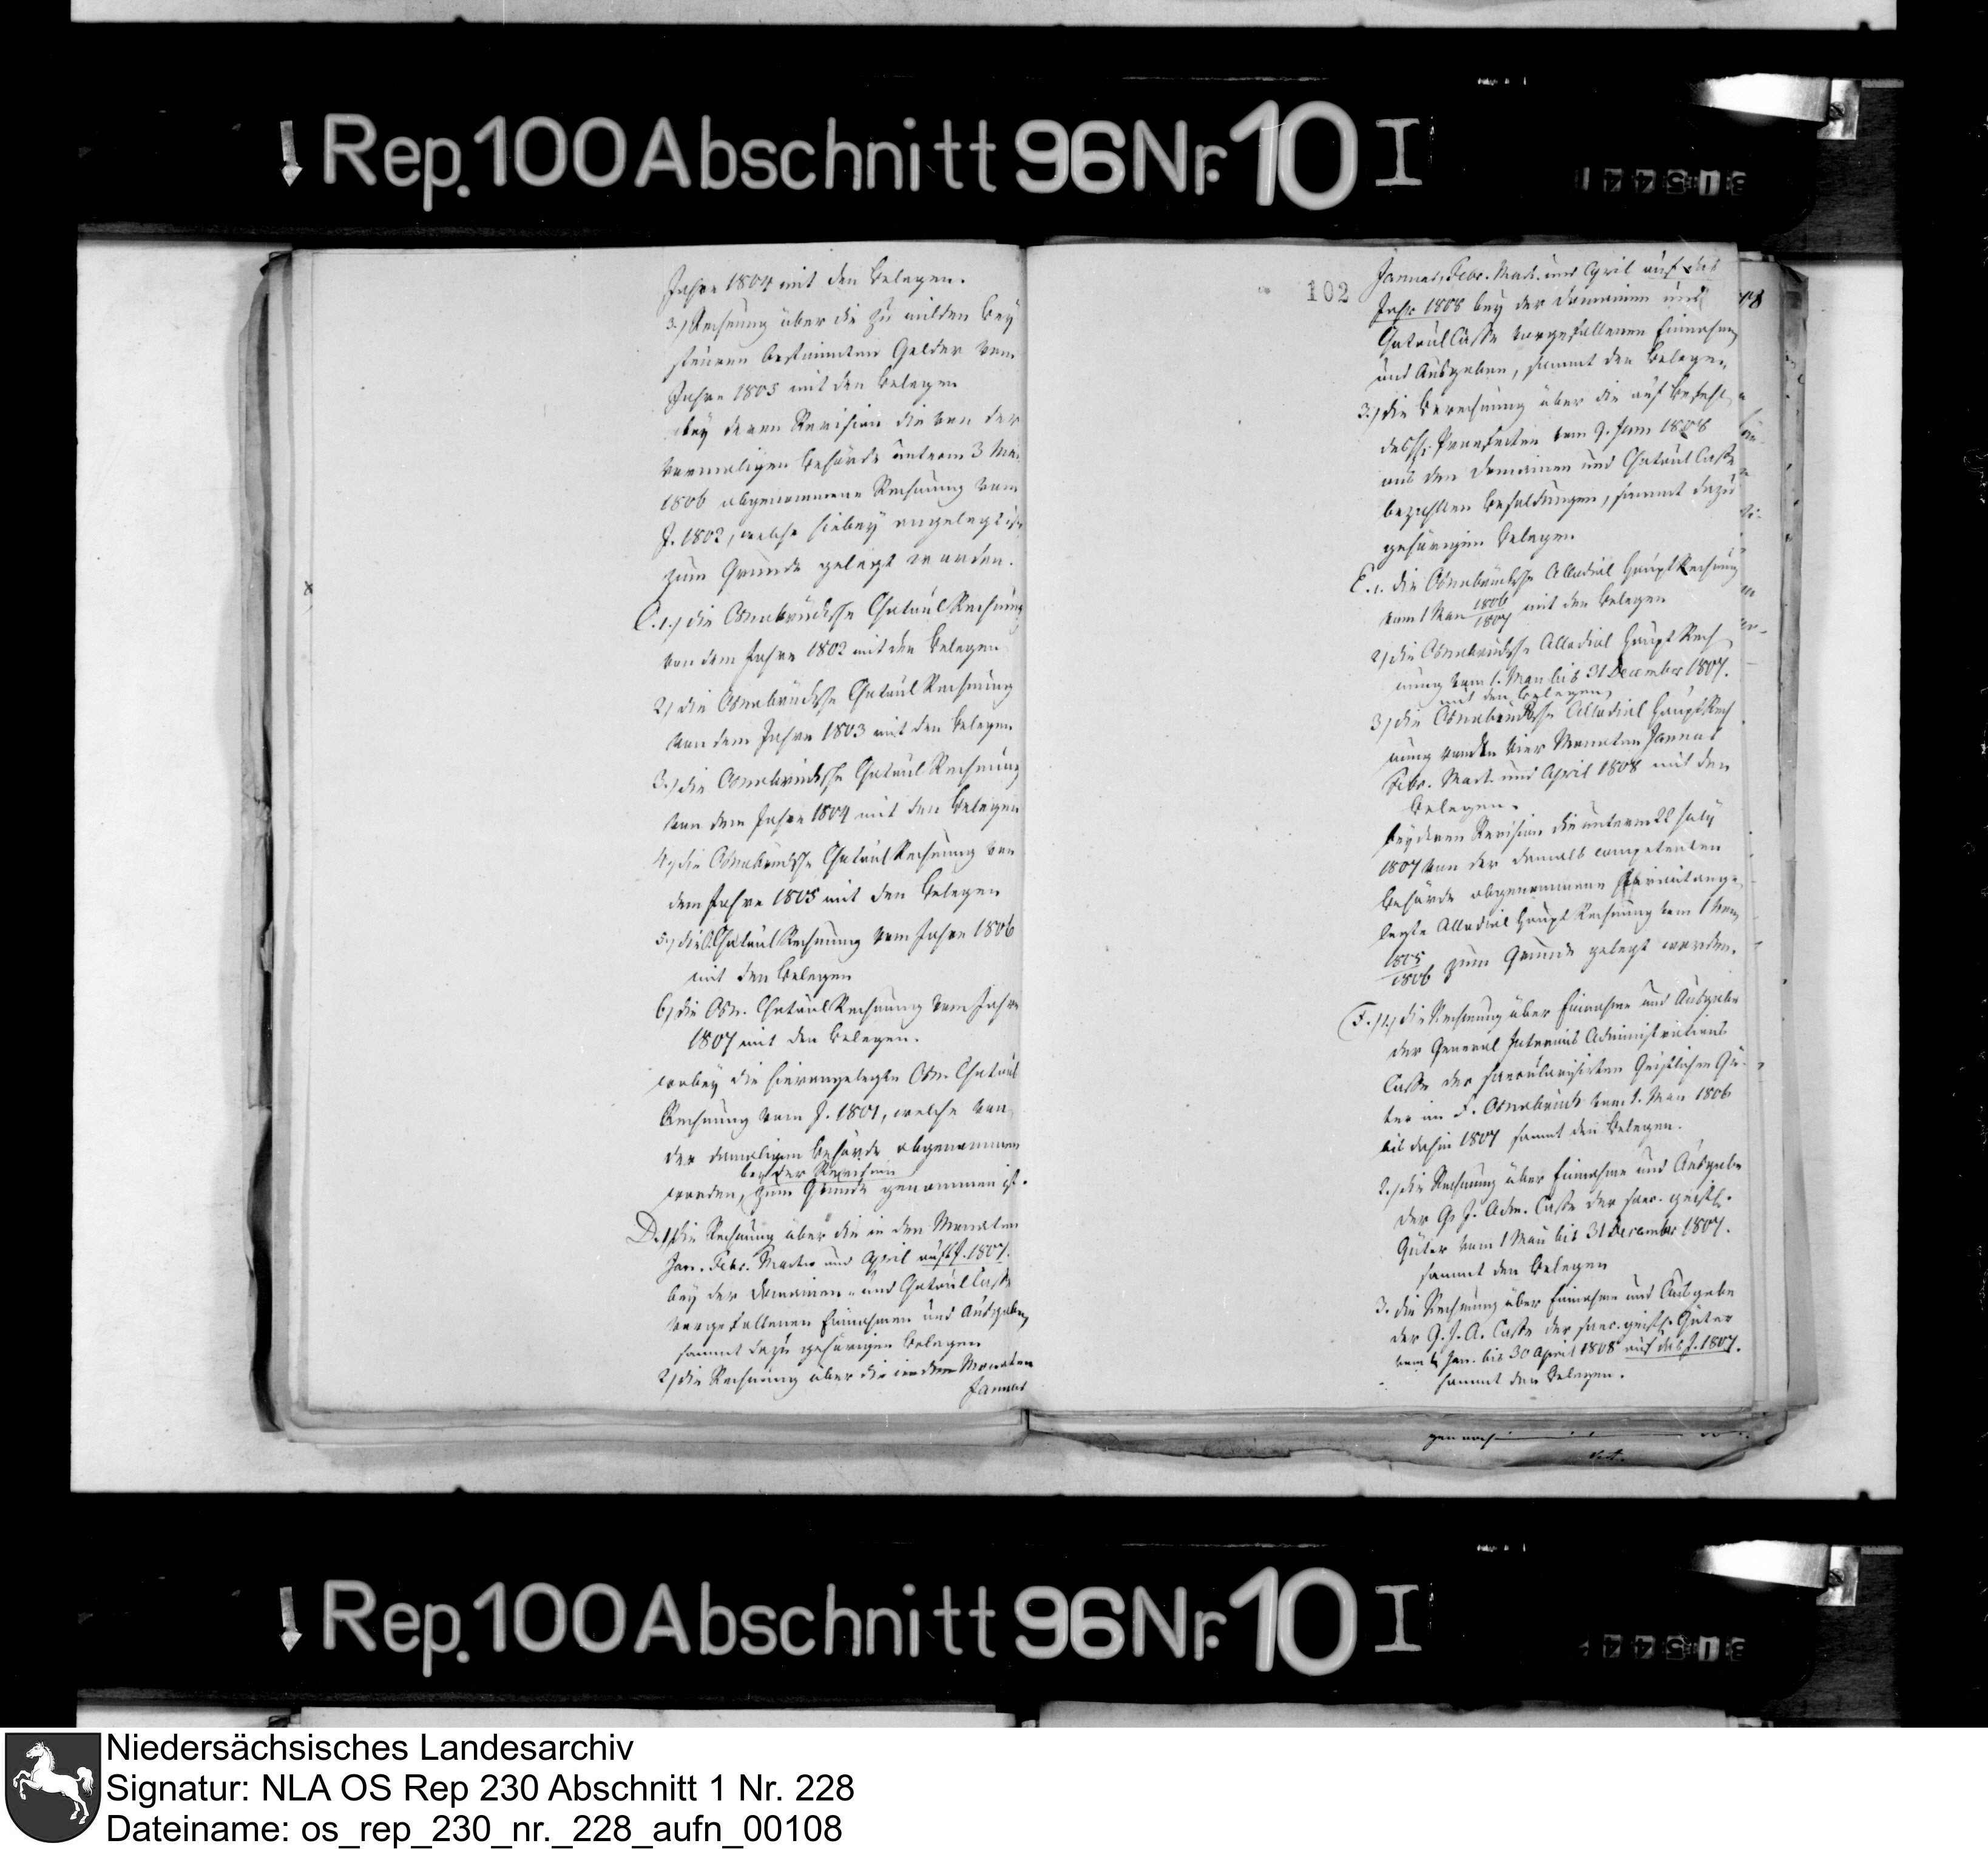 Rep. 100 Abschnitt 96 Nr. 10 I
31544
Jahre 1804 mit den Belegen.
3.) Rechnung über die zu milden Bey
steuren bestimmten Gelder vom
Jahre 1805 mit den Belegen
bey deren Revision die von der
vormaligen Behörde unterm 3 Mai
1806 abgenommene Rechnung vom
J. 1802, welche hiebey angelegt ist
zum Grunde gelegt worden.
C. 1.) die Osnabrücksche Chatoul Rechnung
von dem Jahre 1802 mit den Belegen
2.) die Osnabrücksche Chatoul Rechnung
von dem Jahre 1803 mit den Belegen
3.) die Osnabrücksche Chatoul Rechnung
von dem Jahre 1804 mit den Belegen
4.) die Osnabrücksche Chatoul Rechnung von
dem Jahre 1805 mit den Belegen
5.) die Chatoul Rechnung vom Jahre 1806
mit den Belegen
6.) die Osn. Chatoul Rechnung vom Jahre
1807 mit den Belegen.
wobey die hierangelegte Osn. Chatoul
Rechnung vom J. 1801, welche von
der damaligen Behörde abgenommen
bey der Revision
worden, zum Grunde genommen ist.
D. 1.) die Rechnung über die in den Monaten
Jan. Febr. Martii und April aufs J. 1807.
bey der Domainen- und Chatoul Casse
vorgefallenen Einnahmen und Ausgaben,
sammt dazu gehörigen Belegen
2.) die Rechnung über die in den Monaten
Januar
102
Januar, Febr. Mart. und April auf das
Jahr 1808 bey der Domainen und
Chatoul Casse vorgefallenen Einnahmen
und Ausgaben, sammt den Belegen.
3.) die Berechnung über die auf Befehl
des H. Praefecten vom 9. Jan. 1808
aus den Domainen und Chatoul Casse
bezahlten Besoldungen, sammt dazu
gehörigen Belegen
E. 1. die Osnabrücksche Allodial Haupt Rechnung
vom 1 Mai 1806/1807 mit den Belegen
2.) die Osnabrücksche Allodial Haupt Rech
nung vom 1. Mai bis 31 December 1807.
mit den Belegen,
3.) die Osnabrücksche Allodial Haupt Rech
nung von den vier Monaten Januar
Febr. Mart. und April 1808 mit den
Belegen.
bey deren Revision die unterm 22 July
1807 von der damals competenten
Behörde abgenommene hierait ange
legte Allodial Haupt Rechnung vom 1 Mai
1805/1806 zum Grunde gelegt worden.
F. 1.) die Rechnung über Einnahme und Ausgabe
der General Interims Administrations
Casse der saecularisirten Geistlichen Gü-
ter im F. Osnabrück vom 1. Mai 1806
bis dahin 1807 sammt den Belegen.
2.) die Rechnung über Einnahme und Ausgabe
der G. J. Adm. Casse der saec. geistl.
Güter vom 1 Mai bis 31 December 1807.
sammt den Belegen
3. die Rechnung über Einnahme und Ausgabe
der G. J. A. Casse der saec. geistl. Güter
vom 1 Jan. bis 30 April 1808 auf das J. 1807.
sammt den Belegen.
Rep. 100 Abschnitt 96 Nr. 10 I
31544
Niedersächsisches Landesarchiv
Signatur: NLA OS Rep 230 Abschnitt 1 Nr. 228
Dateiname: os_rep_230_nr._228_aufn_00108